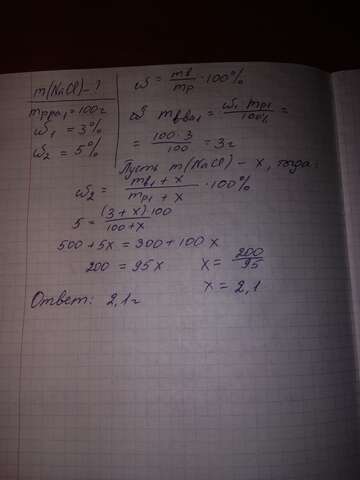 m(NaCl) - ?
m р-ра1 = 100г
ω1 = 3%
ω2 = 5%
ω = mв/mр · 100%
m в-ва1 = ω1 · mр1 / 100% =
= 100 · 3 / 100 = 3г
Пусть m(NaCl) - x, тогда:
ω2 = mв1 + x / mр1 + x · 100%
5 = (3 + x) 100 / 100 + x
500 + 5x = 300 + 100 x
200 = 95x
x = 200/95
x = 2,1
Ответ: 2,1г